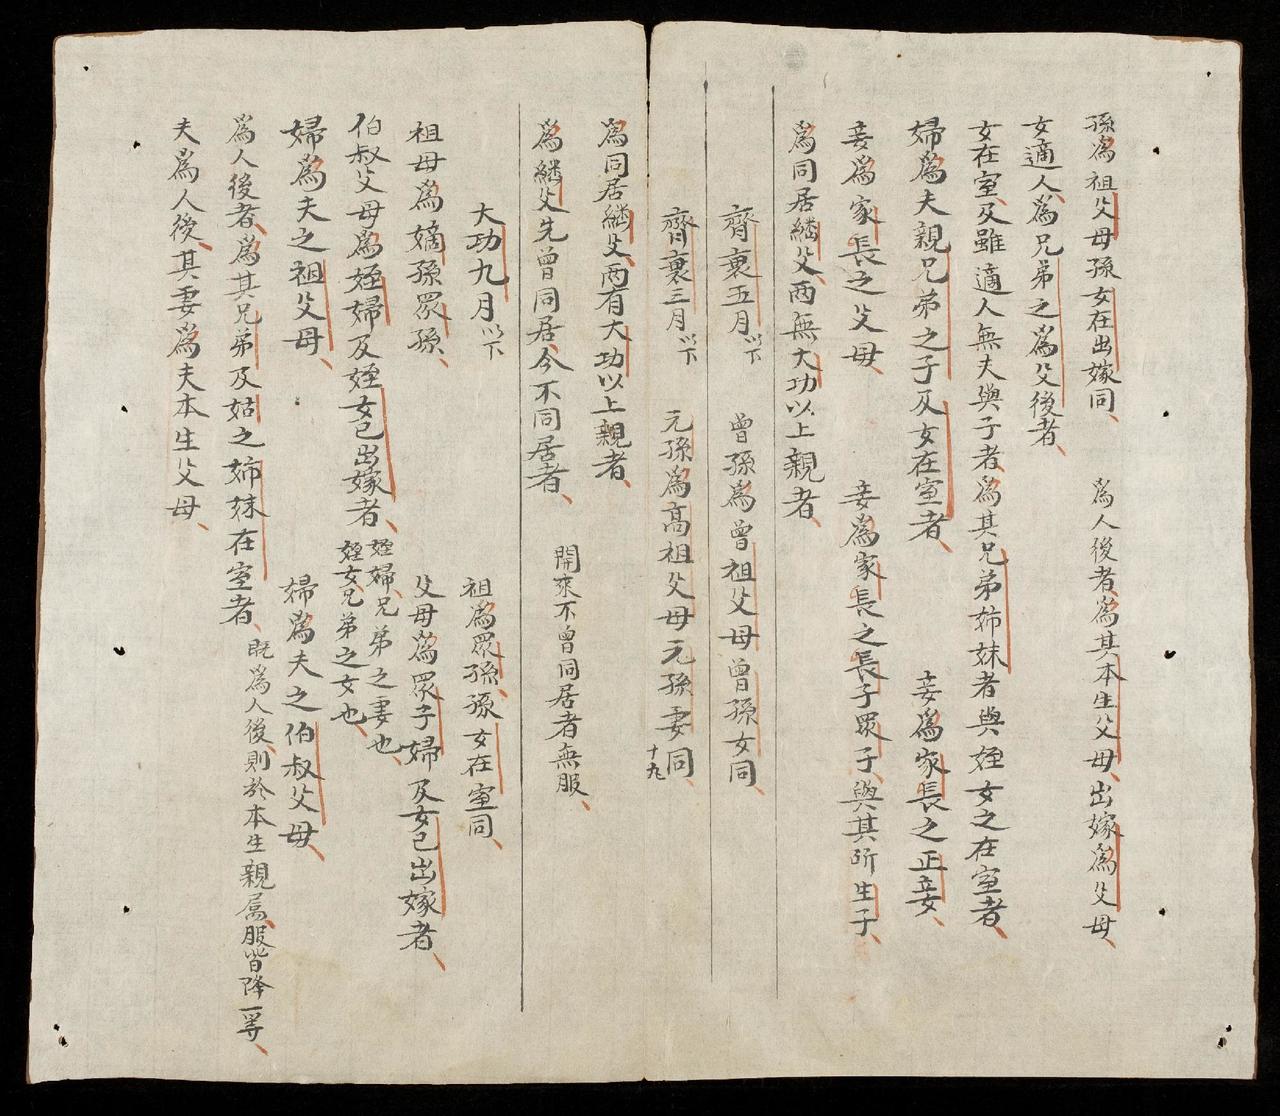 孫爲祖父母孫女在出嫁同、　爲人後者、爲其本生父母、出嫁爲父母、
女適人爲兄弟之爲父後者、
女在室及雖適人無夫與子者、爲其兄弟姉妹者與姪女之在室者、
婦爲夫親兄弟之子及女在室者、　妾爲家長之正妾、
妾爲家長之父母　妾爲家長之長子眾子與其所生子、
爲同居繼父、兩無大功以上親者、
齊衰五月以下　曾孫爲曾祖父母曾孫女同、
齊衰三月以下　元孫爲高祖父母元孫妻同、十九
爲同居繼父、兩有大功以上親者、
爲繼父先曾同居、今不同居者、　開來不曾同居者無服、
大功九月以下　祖爲眾孫、孫女在室同、
祖母爲嫡孫眾孫、　父母爲眾子婦及女已出嫁者、
伯叔父母爲姪婦及姪女已出嫁者、姪婦、兄弟之妻也、姪女、兄弟之女也、
婦爲夫之祖父母、　婦爲夫之伯叔父母、
爲人後者、爲其兄弟及姑之姉妹在室者、既爲人後、則於本生親屬、服皆降一等、
夫爲人後、其妻爲夫本生父母、